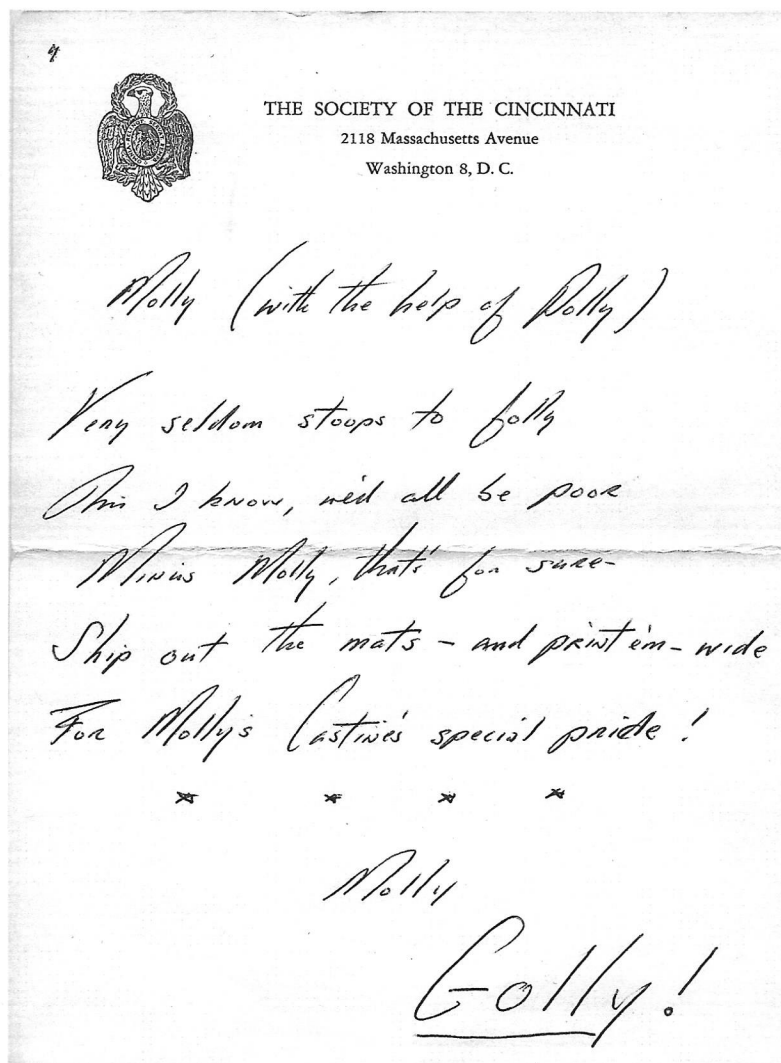 THE SOCIETY OF THE CINCINNATI
2118 Massachusetts Avenue
Washington 8, D. C.
Molly (with the help of Dolly)
Very seldom stoops to folly
This I know, we'd all be poor
Minus Molly, that's for sure-
Ship out the mats - and print 'em - wide
For Molly's Castine's special pride!
Molly
Golly!